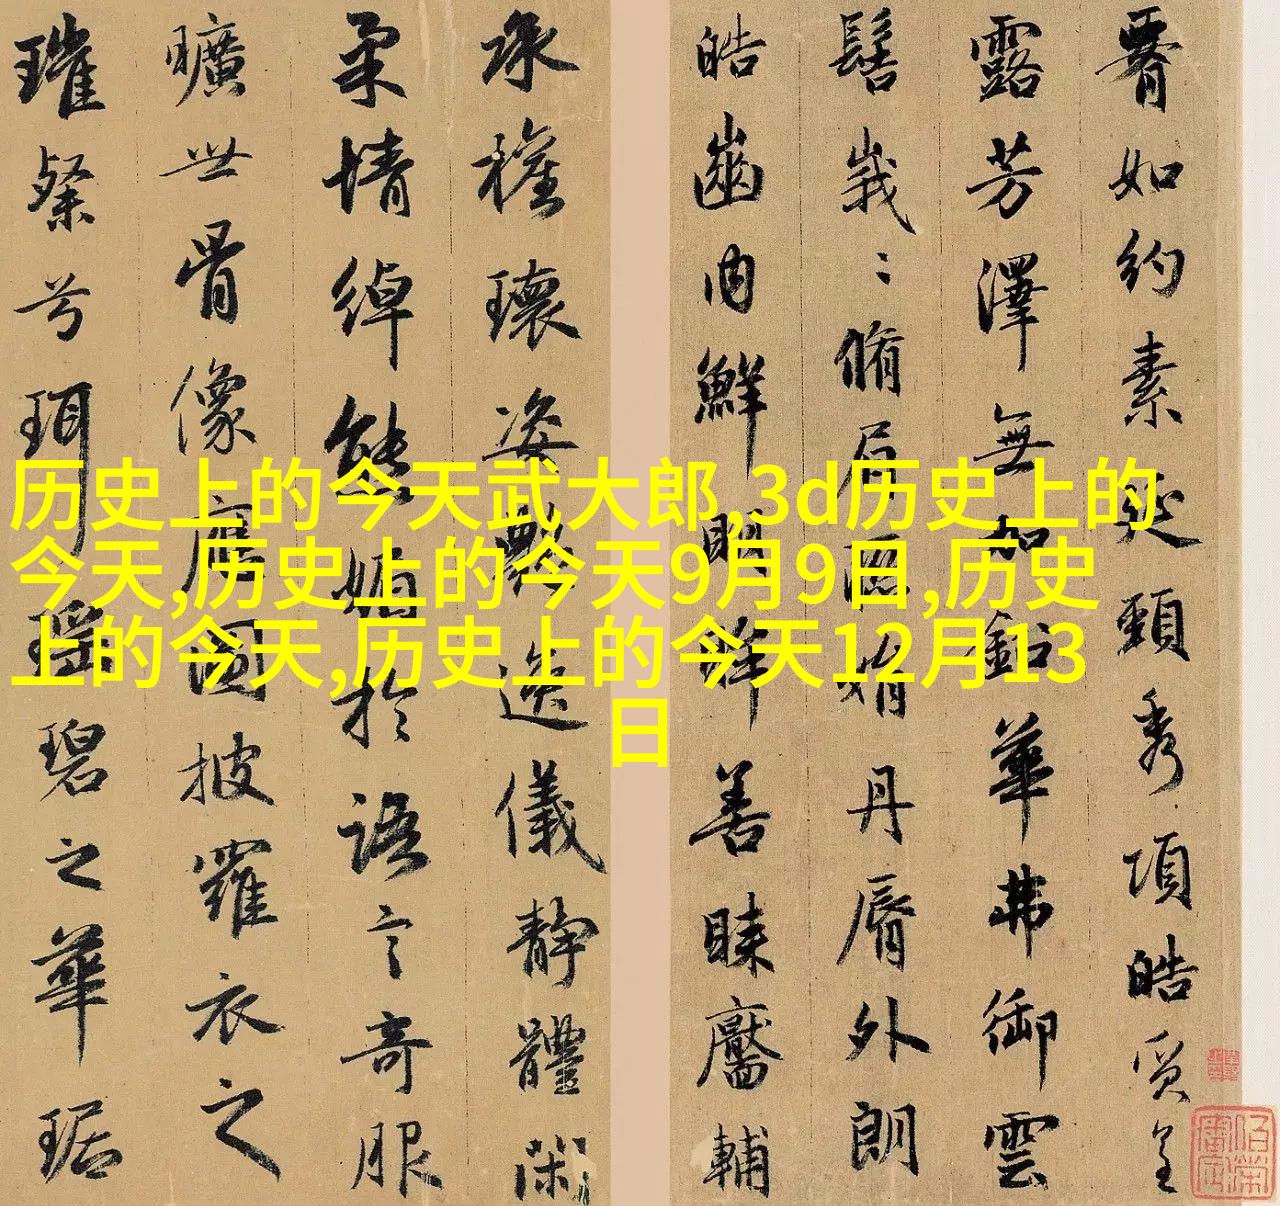 历史上的今天武大郎,3d历史上的
今天,历史上的今天9月9日,历史
上的今天,历史上的今天12月13
日
腰如約素延頸秀項皓質呈
露芳澤無加鉛華弗御雲
髻峩〻脩眉聯娟丹脣外朗
皓齒内鮮明眸善睞靨輔
承權瓌姿艷逸儀靜體閑
柔情綽態媚於語言奇服
曠世骨像應圖披羅衣之
璀粲兮珥瑤碧之華琚